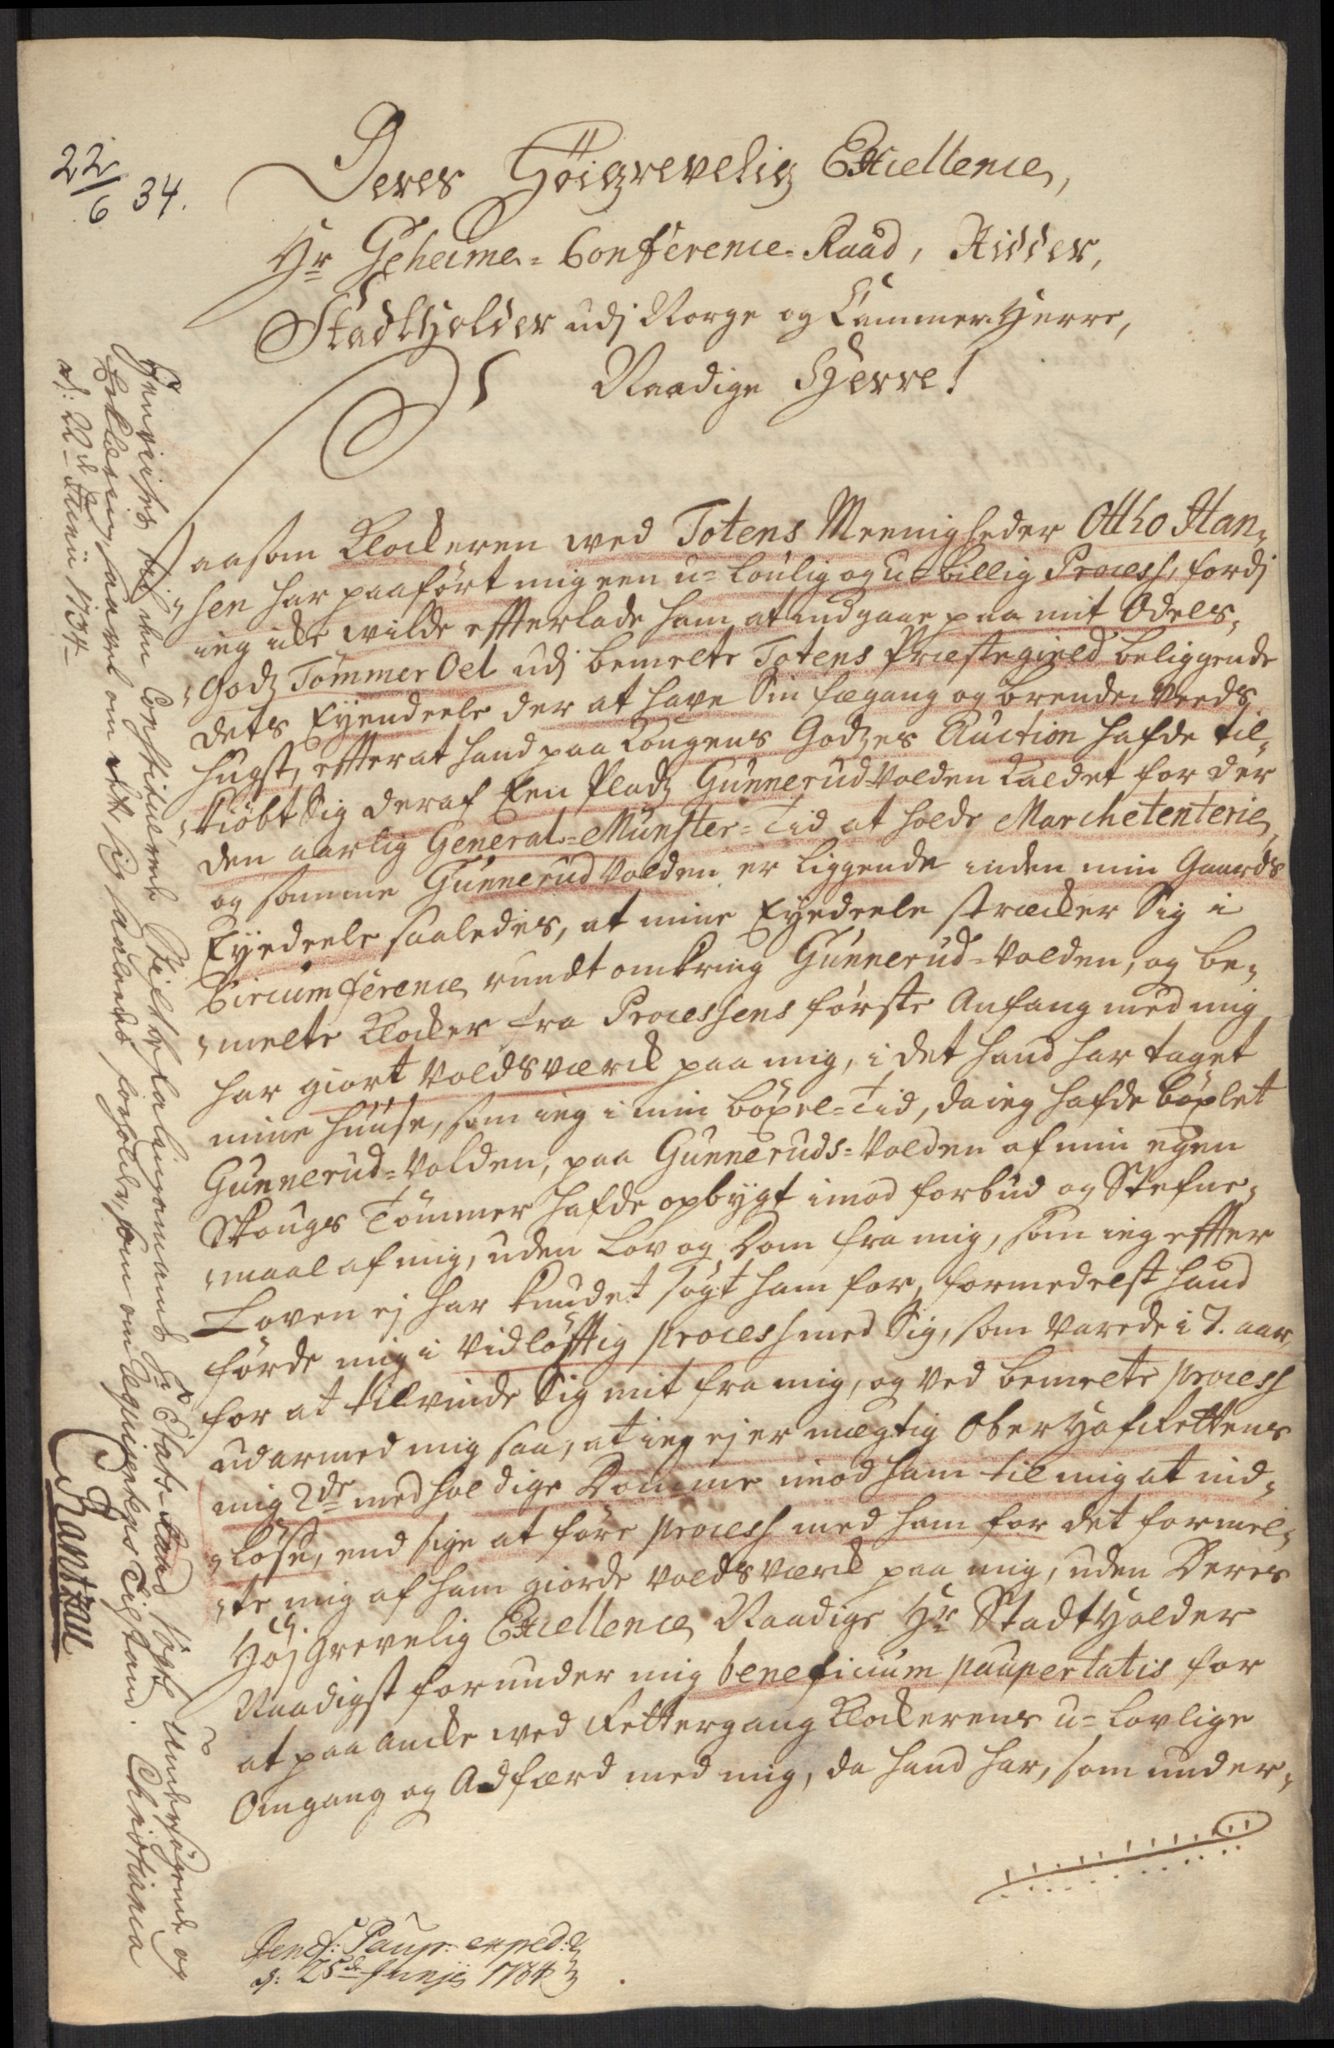 22/6 34.
Deres Höigrevelig Excellence,
Hr Geheime-Conference-Raad, Ridder,
StadtHolder udj Norge og Cammer-Herre,
Naadige Herre!
Saasom Klockeren wed Totens Meenigheder Otto Han-
sen har paaført mig een u-loulig og u-billig Process, fordj
ieg icke wilde efterlade ham at indgaae paa mit Odels-
Godz TømmerOel udj bemelte Totens Præstegield beliggende
dets Eyendeele der at have Sin fægang og brende-Veeds
hugst, efter at hand paa Kongens Godzes Auction hafde til-
kiøbt Sig deraf Een Pladz Gunnerud-Volden kaldet for der
den aarlig General-Munster-Tid at holde Marchetenterie,
og samme Gunnerud Volden er liggende inden min Gaards
Eyedeele saaledes, at mine Eyedeele strecker Sig i
Circumference rundt omkring Gunnerud-Volden, og be-
melte Klocker fra Processens første Anfang med mig
har giort Voldsværck paa mig, i det hand har taget
mine huuse, som ieg i min böxel-Tid, da ieg hafde böxlet
Gunnerud-Volden, paa Gunneruds-Volden af min egen
Skougs Tömmer hafde opbygt imod forbud og Stefne-
maal af mig, uden Lov og Dom fra mig, som ieg effter
Loven ej har kundet søgt ham for, formedelst hand
førde mig i Vidløfftig process med Sig, som varede i 7. aar,
for at tilvinde Sig mit fra mig, og ved bemelte process
udarmed mig saa, at ieg ej er mægtig OberHofRettens
mig 2de medholdige Domme imod ham til mig at ind-
løse, end sige at føre process med ham for det formel-
te mig af ham giorde voldsværck paa mig, uden Deres
HøjGrevelig Excellence Naadige Hr StadtHolder
Naadigst forunder mig beneficium paupertatis for
at paa ancke wed Rettergang Klockerens u-lovlige
Omgang og Adfærd med mig, da hand har, som under-
Henviises til den Constituerede Stiftbefalingsmand Hr Etats-Raad Vogt Undersøgende og
Erklæring, saavel om det sig saaledes forholder, som om Supplicantens Tilstand. Christiania
d: 22de Junii 1734
Rantzau
Benef: Paup: exped:
d: 25de Junij 1734